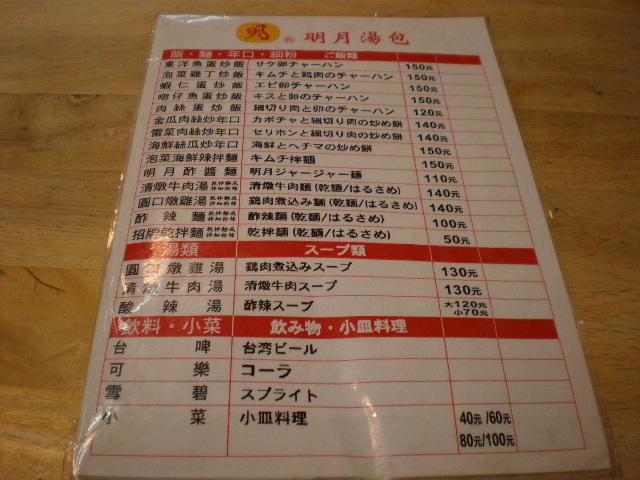 明月湯包
飯・麵・年口・細粉 ご飯類
東洋魚蛋炒飯 サケ卵チャーハン 150元
泡菜雞丁炒飯 キムチと鶏肉のチャーハン 150元
蝦仁蛋炒飯 エビ卵チャーハン 150元
吻仔魚蛋炒飯 キスと卵のチャーハン 150元
肉絲蛋炒飯 細切り肉と卵のチャーハン 120元
金瓜肉絲炒年口 カボチャと細切り肉の炒め餅 140元
雪菜肉絲炒年口 セリホンと細切り肉の炒め餅 140元
海鮮絲瓜炒年口 海鮮とヘチマの炒め餅 150元
泡菜海鮮辣拌麵 キムチ拌麺 150元
明月酢醬麵 明月ジャージャー麺 110元
清燉牛肉湯 清燉牛肉麺(乾麺/はるさめ) 140元
圓口燉雞湯 鶏肉煮込み麺(乾麺/はるさめ) 140元
酢辣麵 酢辣麺(乾麺/はるさめ) 100元
招牌乾拌麵 乾拌麺(乾麺/はるさめ) 50元
湯類 スープ類
圓口燉雞湯 鶏肉煮込みスープ 130元
清燉牛肉湯 清燉牛肉スープ 130元
酸辣湯 酢辣スープ 大120元 小70元
飲料・小菜 飲み物・小皿料理
台啤 台湾ビール
可樂 コーラ
雪碧 スプライト
小菜 小皿料理 40元/60元
80元/100元